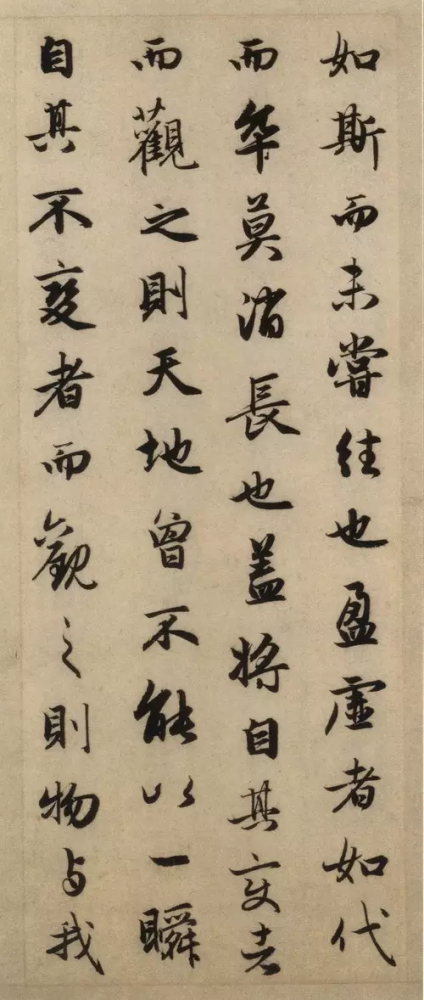 如斯而未嘗往也盈虛者如代
而卒莫消長也蓋將自其變者
而觀之則天地曾不能以一瞬
自其不變者而觀之則物與我